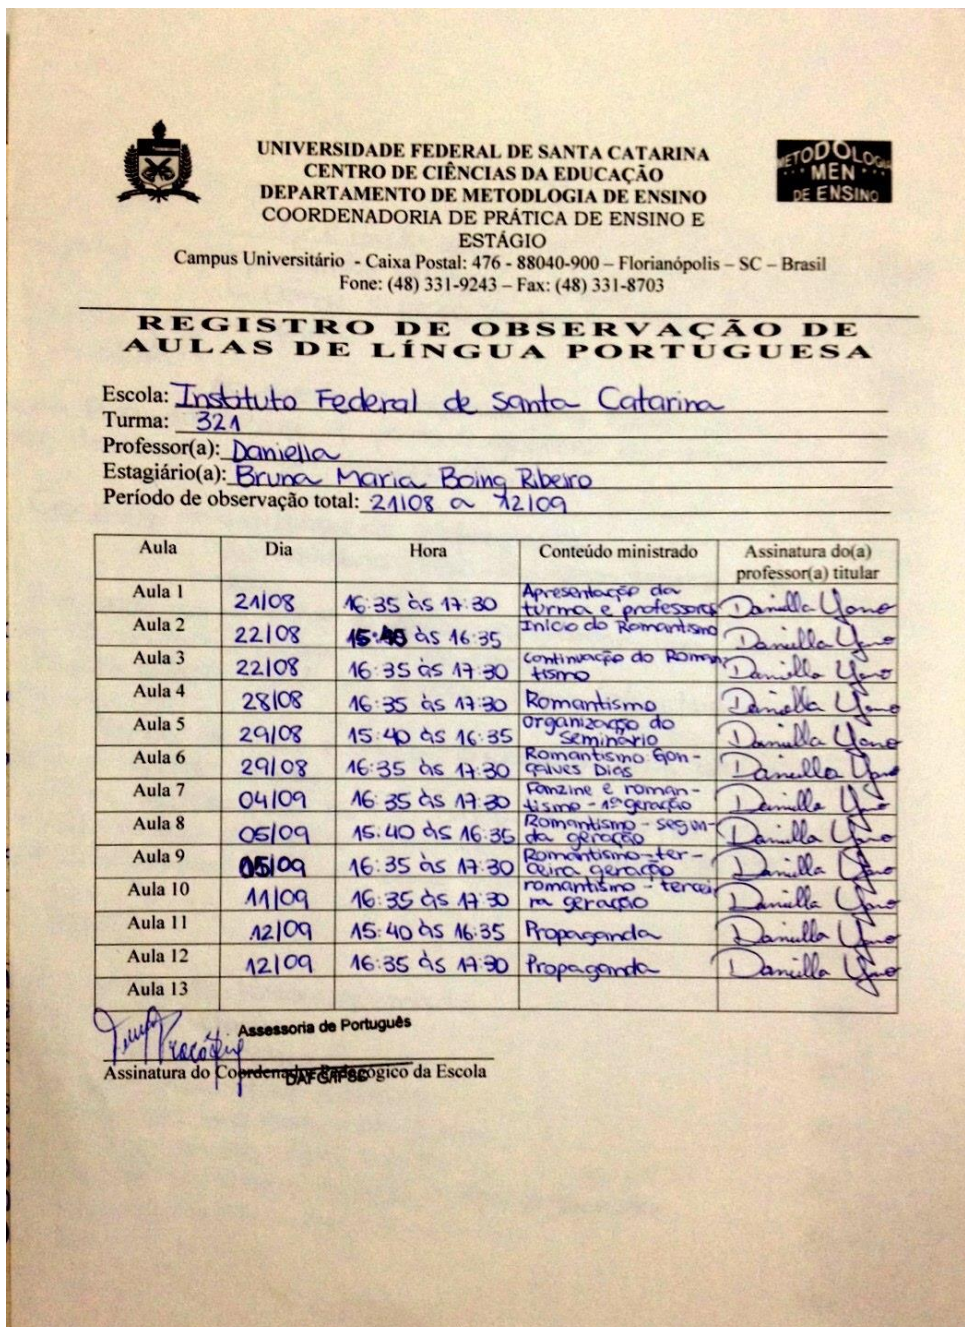 UNIVERSIDADE FEDERAL DE SANTA CATARINA
CENTRO DE CIÊNCIAS DA EDUCAÇÃO
DEPARTAMENTO DE METODLOGIA DE ENSINO
COORDENADORIA DE PRÁTICA DE ENSINO E
ESTÁGIO
Campus Universitário - Caixa Postal: 476 - 88040-900 – Florianópolis – SC – Brasil
Fone: (48) 331-9243 – Fax: (48) 331-8703
METODOLOGIA
MEN
DE ENSINO
REGISTRO DE OBSERVAÇÃO DE
AULAS DE LÍNGUA PORTUGUESA
Escola: Instituto Federal de Santa Catarina
Turma: 321
Professor(a): Daniella
Estagiário(a): Bruna Maria Boing Ribeiro
Período de observação total: 21/08 a 12/09
Aula Dia Hora Conteúdo ministrado Assinatura do(a)
professor(a) titular
Aula 1 21/08 16:35 às 17:30 Apresentação da
turma e professora Daniella Yano
Aula 2 22/08 15:40 às 16:35 Início do Romantismo Daniella Yano
Aula 3 22/08 16:35 às 17:30 continuação do Roman-
tismo Daniella Yano
Aula 4 28/08 16:35 às 17:30 Romantismo Daniella Yano
Aula 5 29/08 15:40 às 16:35 organização do
seminário Daniella Yano
Aula 6 29/08 16:35 às 17:30 Romantismo Gon-
çalves Dias Daniella Yano
Aula 7 04/09 16:35 às 17:30 Fanzine e roman-
tismo - 1ª geração Daniella Yano
Aula 8 05/09 15:40 às 16:35 Romantismo - segun-
da geração Daniella Yano
Aula 9 05/09 16:35 às 17:30 Romantismo - ter-
ceira geração Daniella Yano
Aula 10 11/09 16:35 às 17:30 romantismo - tercei
ra geração Daniella Yano
Aula 11 12/09 15:40 às 16:35 Propaganda Daniella Yano
Aula 12 12/09 16:35 às 17:30 Propaganda Daniella Yano
Aula 13
Assessoria de Português
DAFG/IFSC
Assinatura do Coordenador Pedagógico da Escola